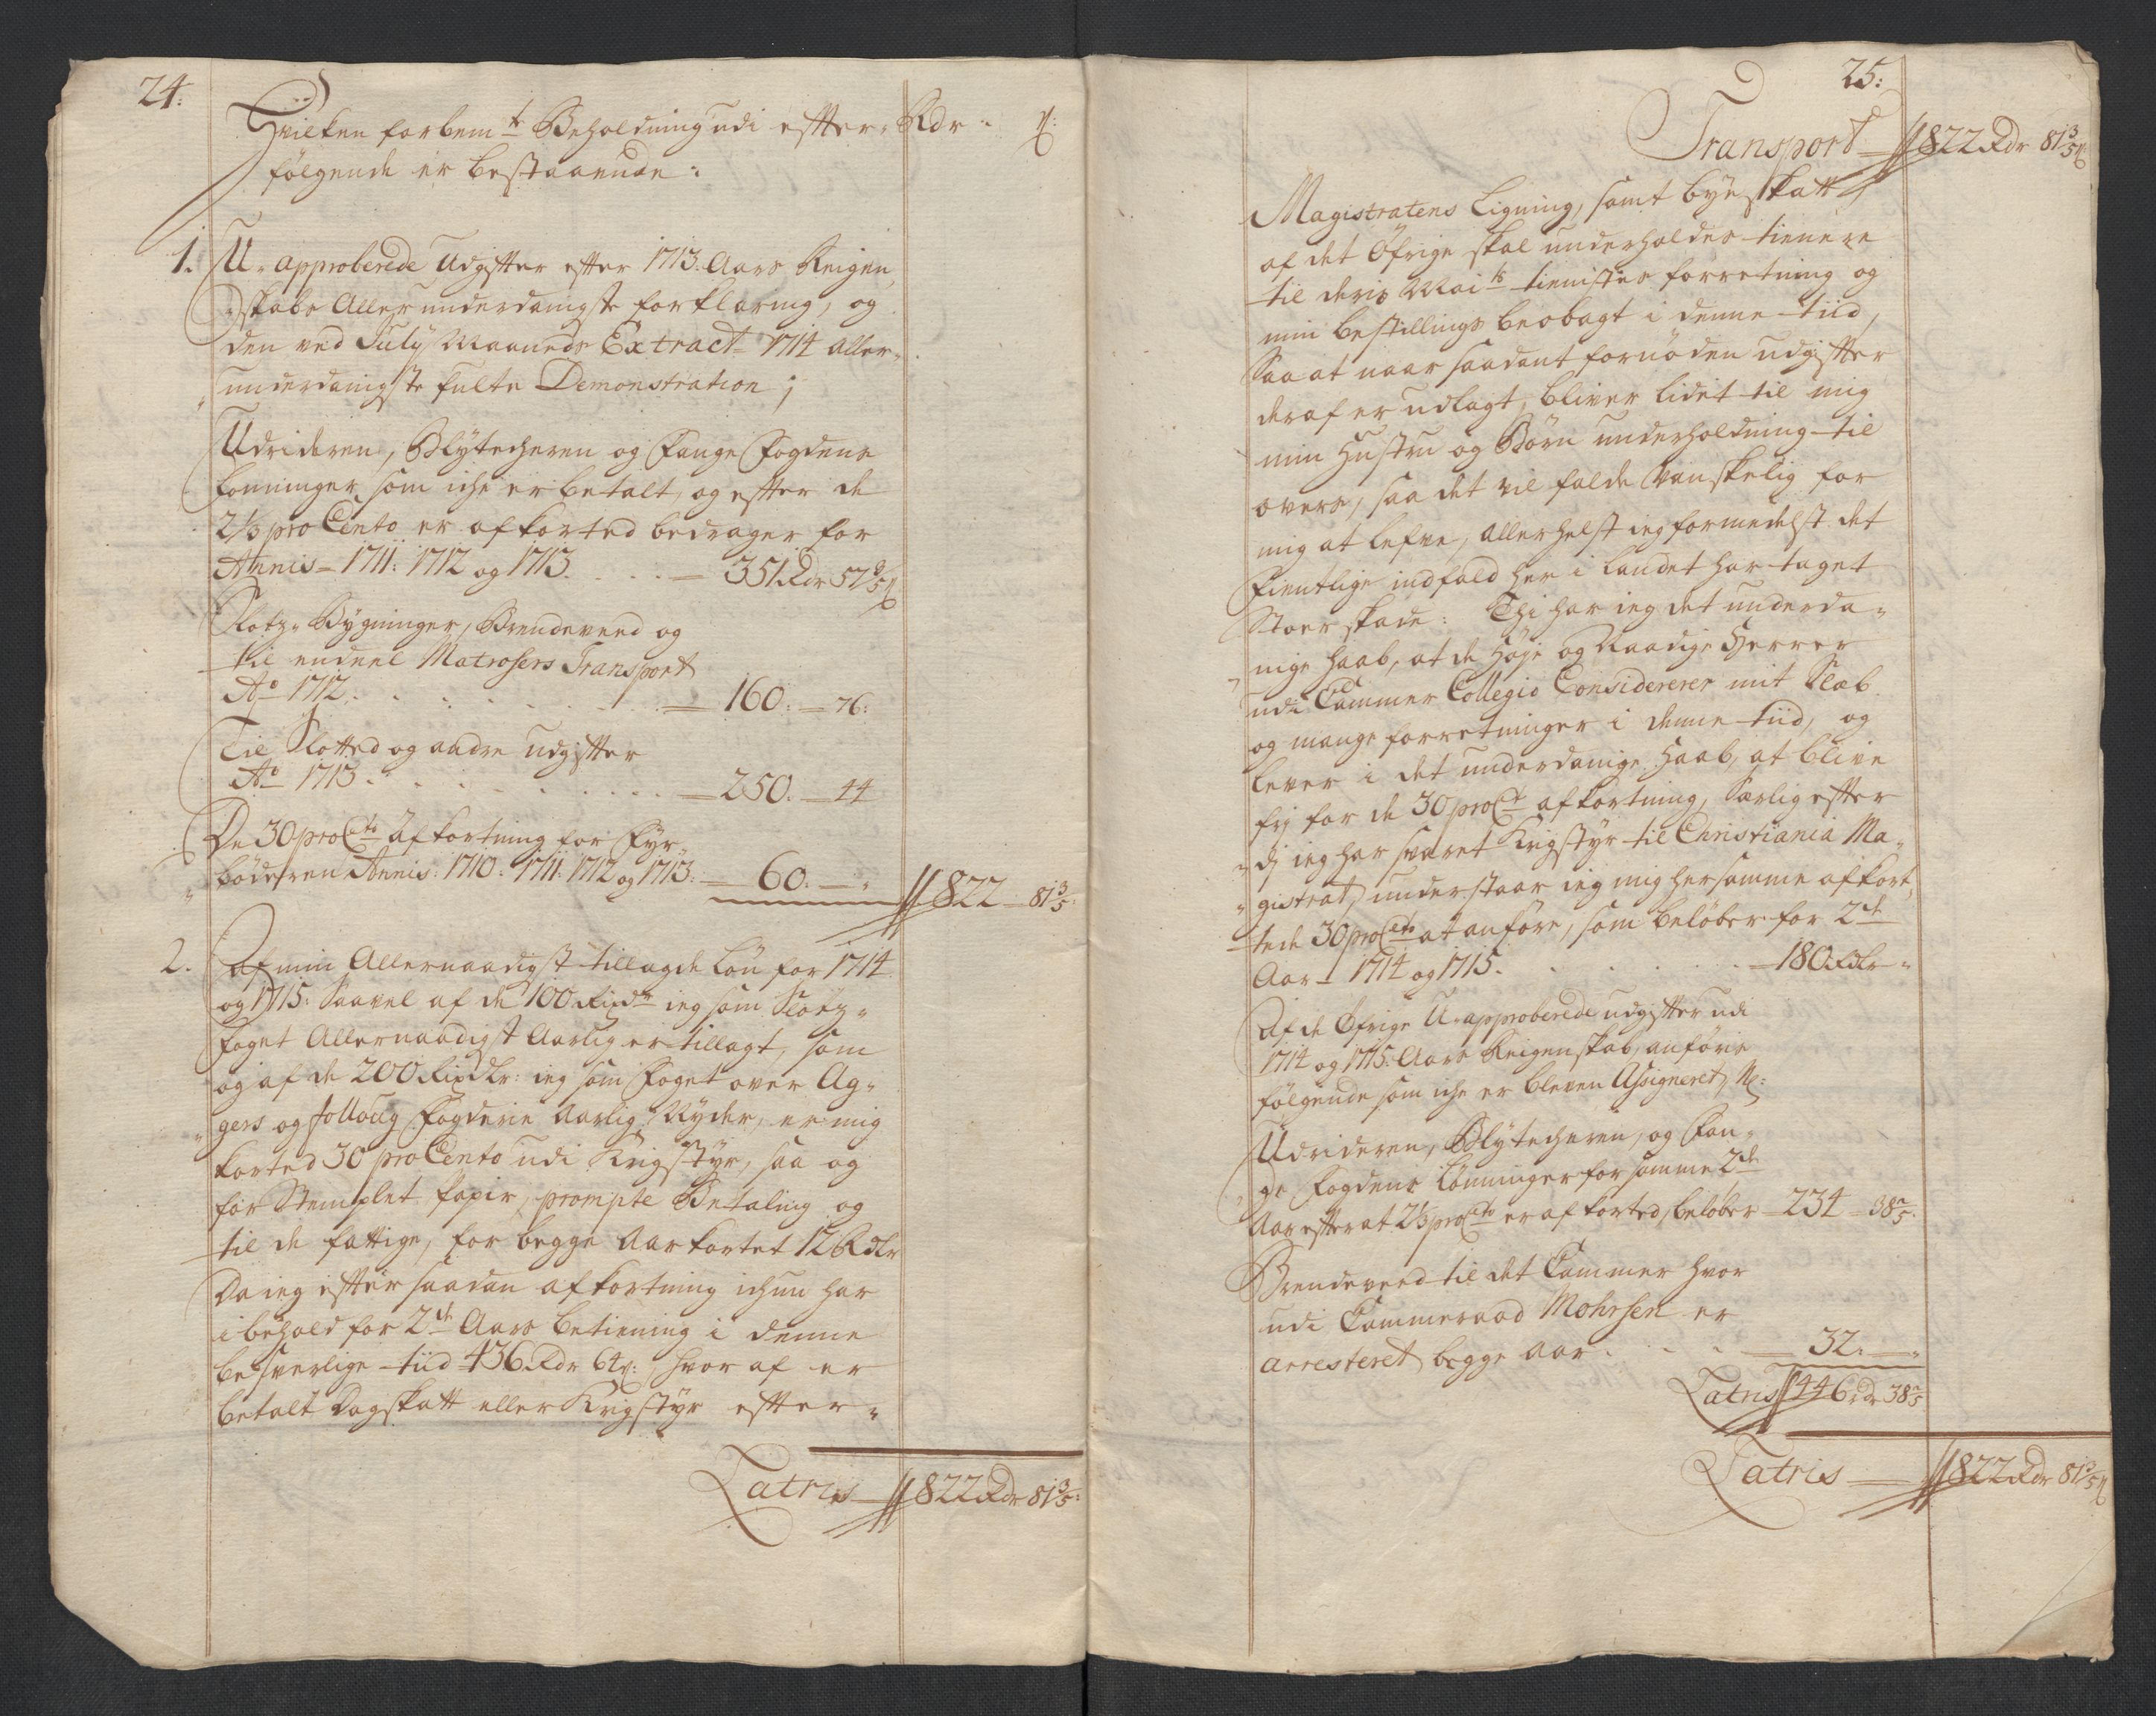 24.
Hvilken forbem.te Beholdning udi effter- Rdr. ß:
følgende er bestaaende:
1. U-approberede Udgiffter effter 1713. Aars Reigen-
skabs Allerunderdanigste forklaring, og
den ved July Maaneds Extract 1714 aller-
underdanigste fulte Demonstration;
Udrideren, Blytecheren og Fange Fogdens
Lønninger som iche er betalt, og effter de
2⅓ pro Cento er afkorted bedrager for
Annis 1711: 1712 og 1713. 351 Rdr 57 3/5 ß
Slotz-Bygninger, Brendeveed og
til endeel Matrosers Transport
Ao 1712. 160: 76:
Til Slotted og andre udgiffter
Ao 1713. 250. 44
De 30 pro Cto Afkortning for Fyr-
bøderen Annis: 1710: 1711: 1712 og 1713: 60. 822 81 3/5
2. Af min Allernaadigst tillagde Løn for 1714
og 1715: Saavel af de 100 Rixdr ieg som Slotz-
foget Allernaadigst Aarlig er tillagt, som
og af de 200 Rixdlr: ieg som Foget over Ag-
gers og Followg Fogderie Aarlig Nyder, er mig
korted 30 pro Cento udi Krigstyr, saa og
for Stemplet Papir, prompte Betaling og
til de fattige, for begge Aar kortet 126 Rdlr
Da ieg effter saadan afkortning ichun har
i behold for 2de Aars betiening i denne
besverlige tiid 436 Rdr 64 ß: hvor af er
betalt Dagskatt eller Krigstyr effter-
Latris 822 Rdr 81 3/5:
25:
Transport 822 Rdr 81 3/5 ß
Magistratens Ligning, samt byeskatt
af det Øfrige skal underholdes tienere
til deris Maits tienistes forretning og
min bestillings beobagt i denne tiid,
Saa at naar saadant fornøden udgiffter
deraf er udlagt, bliver lidet til mig
min Hustru og Børn underholdning til
overs, saa det vil falde vanskelig for
mig at lefve, allerhelst ieg formedelst det
Fientlige indfald her i Landet har taget
Stoer skade: Thi har ieg det underda-
nige haab, at de Høje og Naadige Herrer
udi Cammer Collegio Considererer mit Slæb
og mange forretninger i denne tiid, og
lever i det underdanige haab, at blive
frj for de 30 pro Ct afkortning, Særlig effter
dj ieg har svaret Krigstyr til Christiania Ma-
gistrat, understaar ieg mig her samme afkort-
tede 30 pro Cto at anføre, som beløber for 2de
Aar 1714 og 1715. 180 Rdlr
Af de Øfrige U-approberede udgiffter udi
1714 og 1715: Aars Reigenskab, anføris
følgende som iche er bleven Assigneret, Nl:
Udrideren, Blytecheren, og Fan-
ge Fogdens Lønninger for samme 2de
Aar effter at 2⅓ pro Cto er afkorted, beløber 234 38 2/5.
Brendeveed til det Cammer hvor
udi Cammeraad Mohrsen er
arresteret begge Aar. 32.
Latris 446 rdr 38 2/5
Latris 822 Rdr 81 3/5 ß